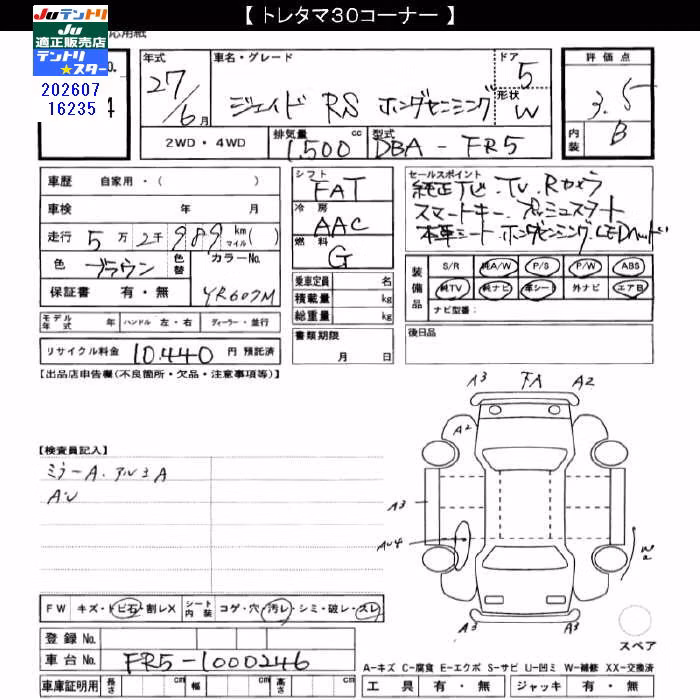 【 トレタマ30コーナー 】
Juテントリ
Ju
適正販売店
テントリ
★スター
応用紙
202607
16235
年式
27/6月
車名・グレード
ジェイド RS ホンダセンシング
ドア
5
形状
W
評価点
3.5
内装
B
2WD・4WD
排気量
1,500
cc
型式
DBA - FR5
車歴 自家用・( )
車検 年 月
走行 5万2千989 km マイル( )
色 ブラウン
色替
カラーNo.
YR607M
保証書 有・無
モデル年式 年 ハンドル 左・右 ディーラー・並行
リサイクル料金 10.440 円 預託済
シフト
FAT
冷房
AAC
燃料
G
乗車定員 名
積載量 kg
総重量 kg
書類期限
月 日
セールスポイント
純正ナビ・TV・Rカメラ
スマートキー・プッシュスタート
本革シート・ホンダセンシング・LEDヘッド
装備品
S/R 純A/W P/S P/W ABS
純TV 純ナビ 革シート 外ナビ エアB
ナビ型番:
後日品
【出品店申告欄(不良箇所・欠品・注意事項等)】
【検査員記入】
ミラーA.アルミA
AU
A3
FA
A2
A2
A3
AU4
W2
A3
A3
スペア
FW キズ・トビ石・割レX
シート内装
コゲ・穴・汚レ・シミ・破レ・スレ
登録 No.
車台 No. FR5-1000246
車庫証明用 長さ cm 幅 cm 高さ cm
A-キズ C-腐食 E-エクボ S-サビ U-凹ミ W-補修 XX-交換済
工具 有・無 ジャッキ 有・無